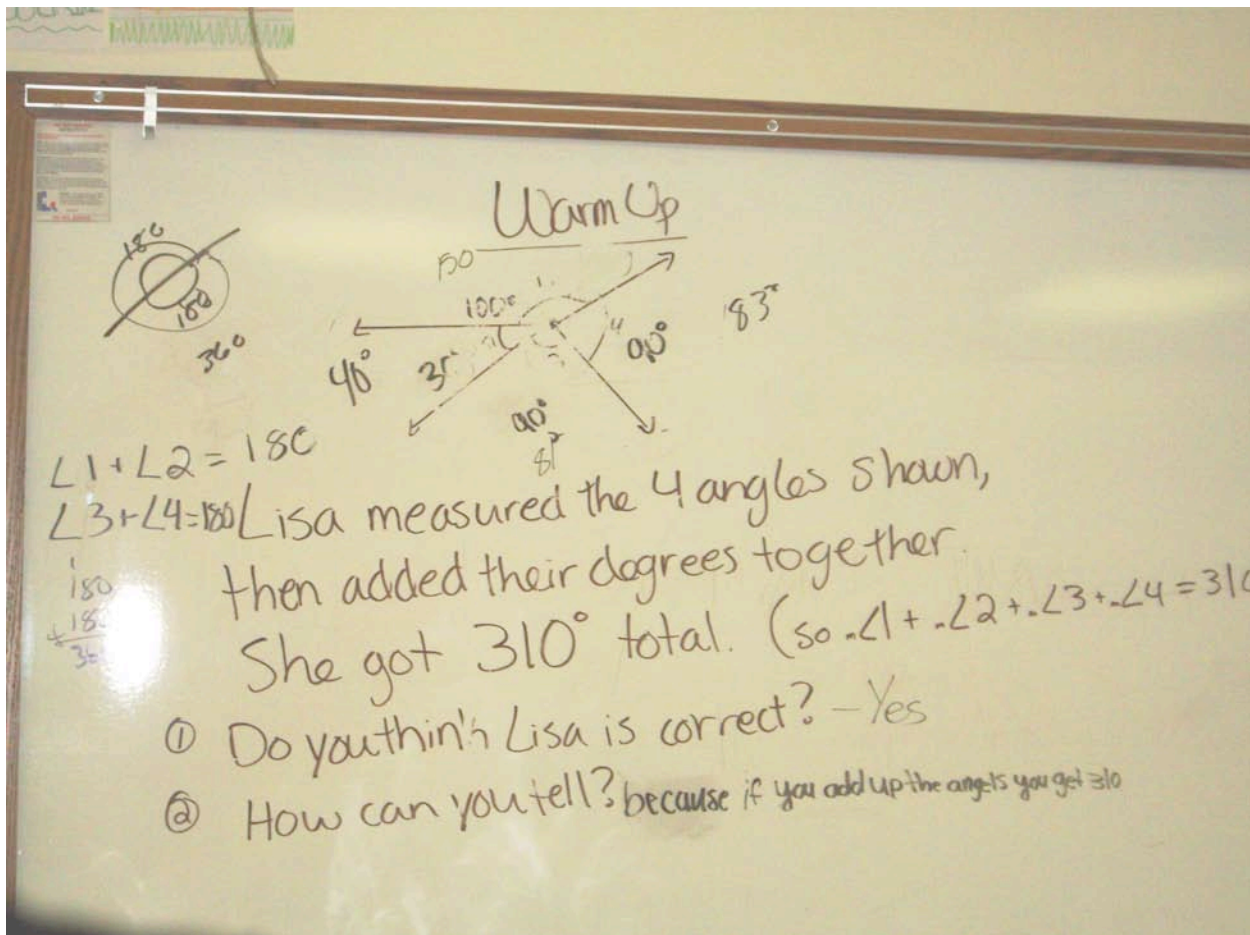 Warm Up
180
180
360
150
100°
1
4
40°
90°
83°
90°
∠1 + ∠2 = 180
∠3 + ∠4 = 180
Lisa measured the 4 angles shown,
then added their degrees together.
She got 310° total. (so ∠1 + ∠2 + ∠3 + ∠4 = 310
180
+
① Do you think Lisa is correct? – Yes
② How can you tell? because if you add up the angels you get 310